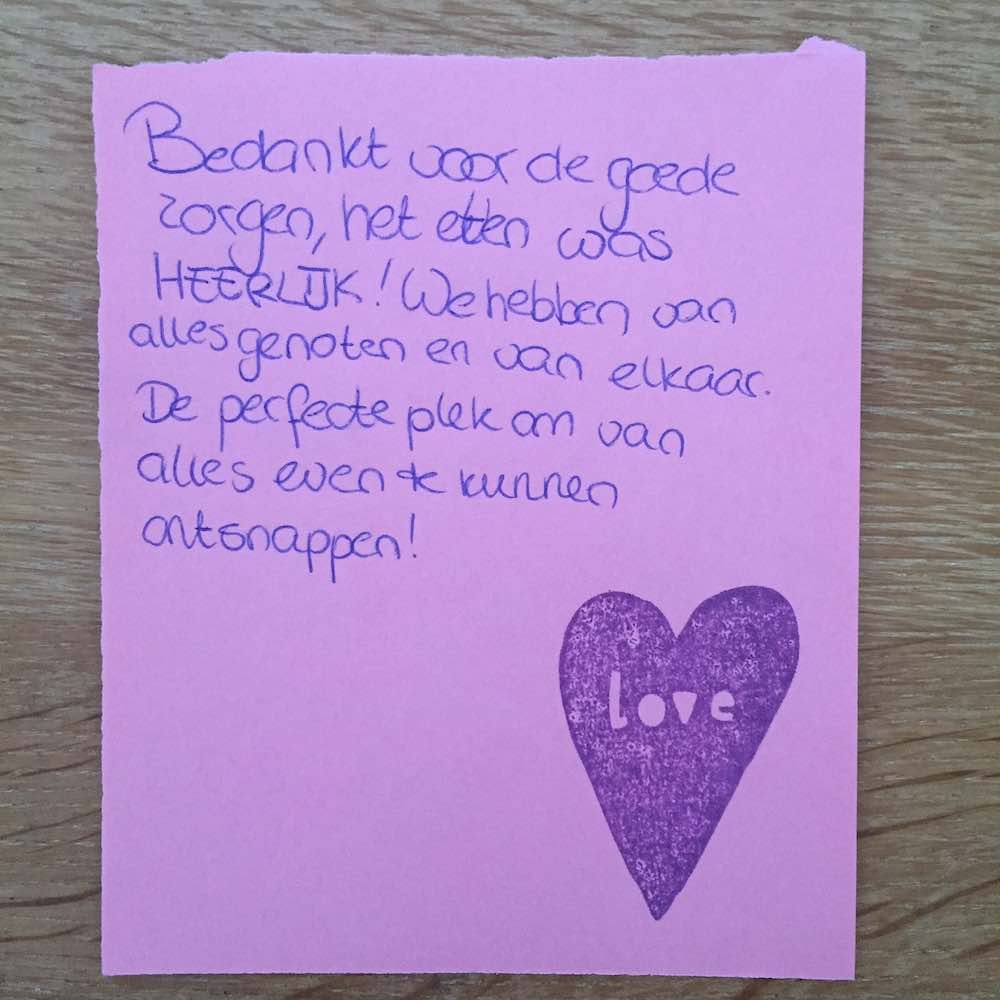 Bedankt voor de goede
zorgen, het eten was
HEERLIJK! We hebben van
alles genoten en van elkaar.
De perfecte plek om van
alles even te kunnen
ontsnappen!
love